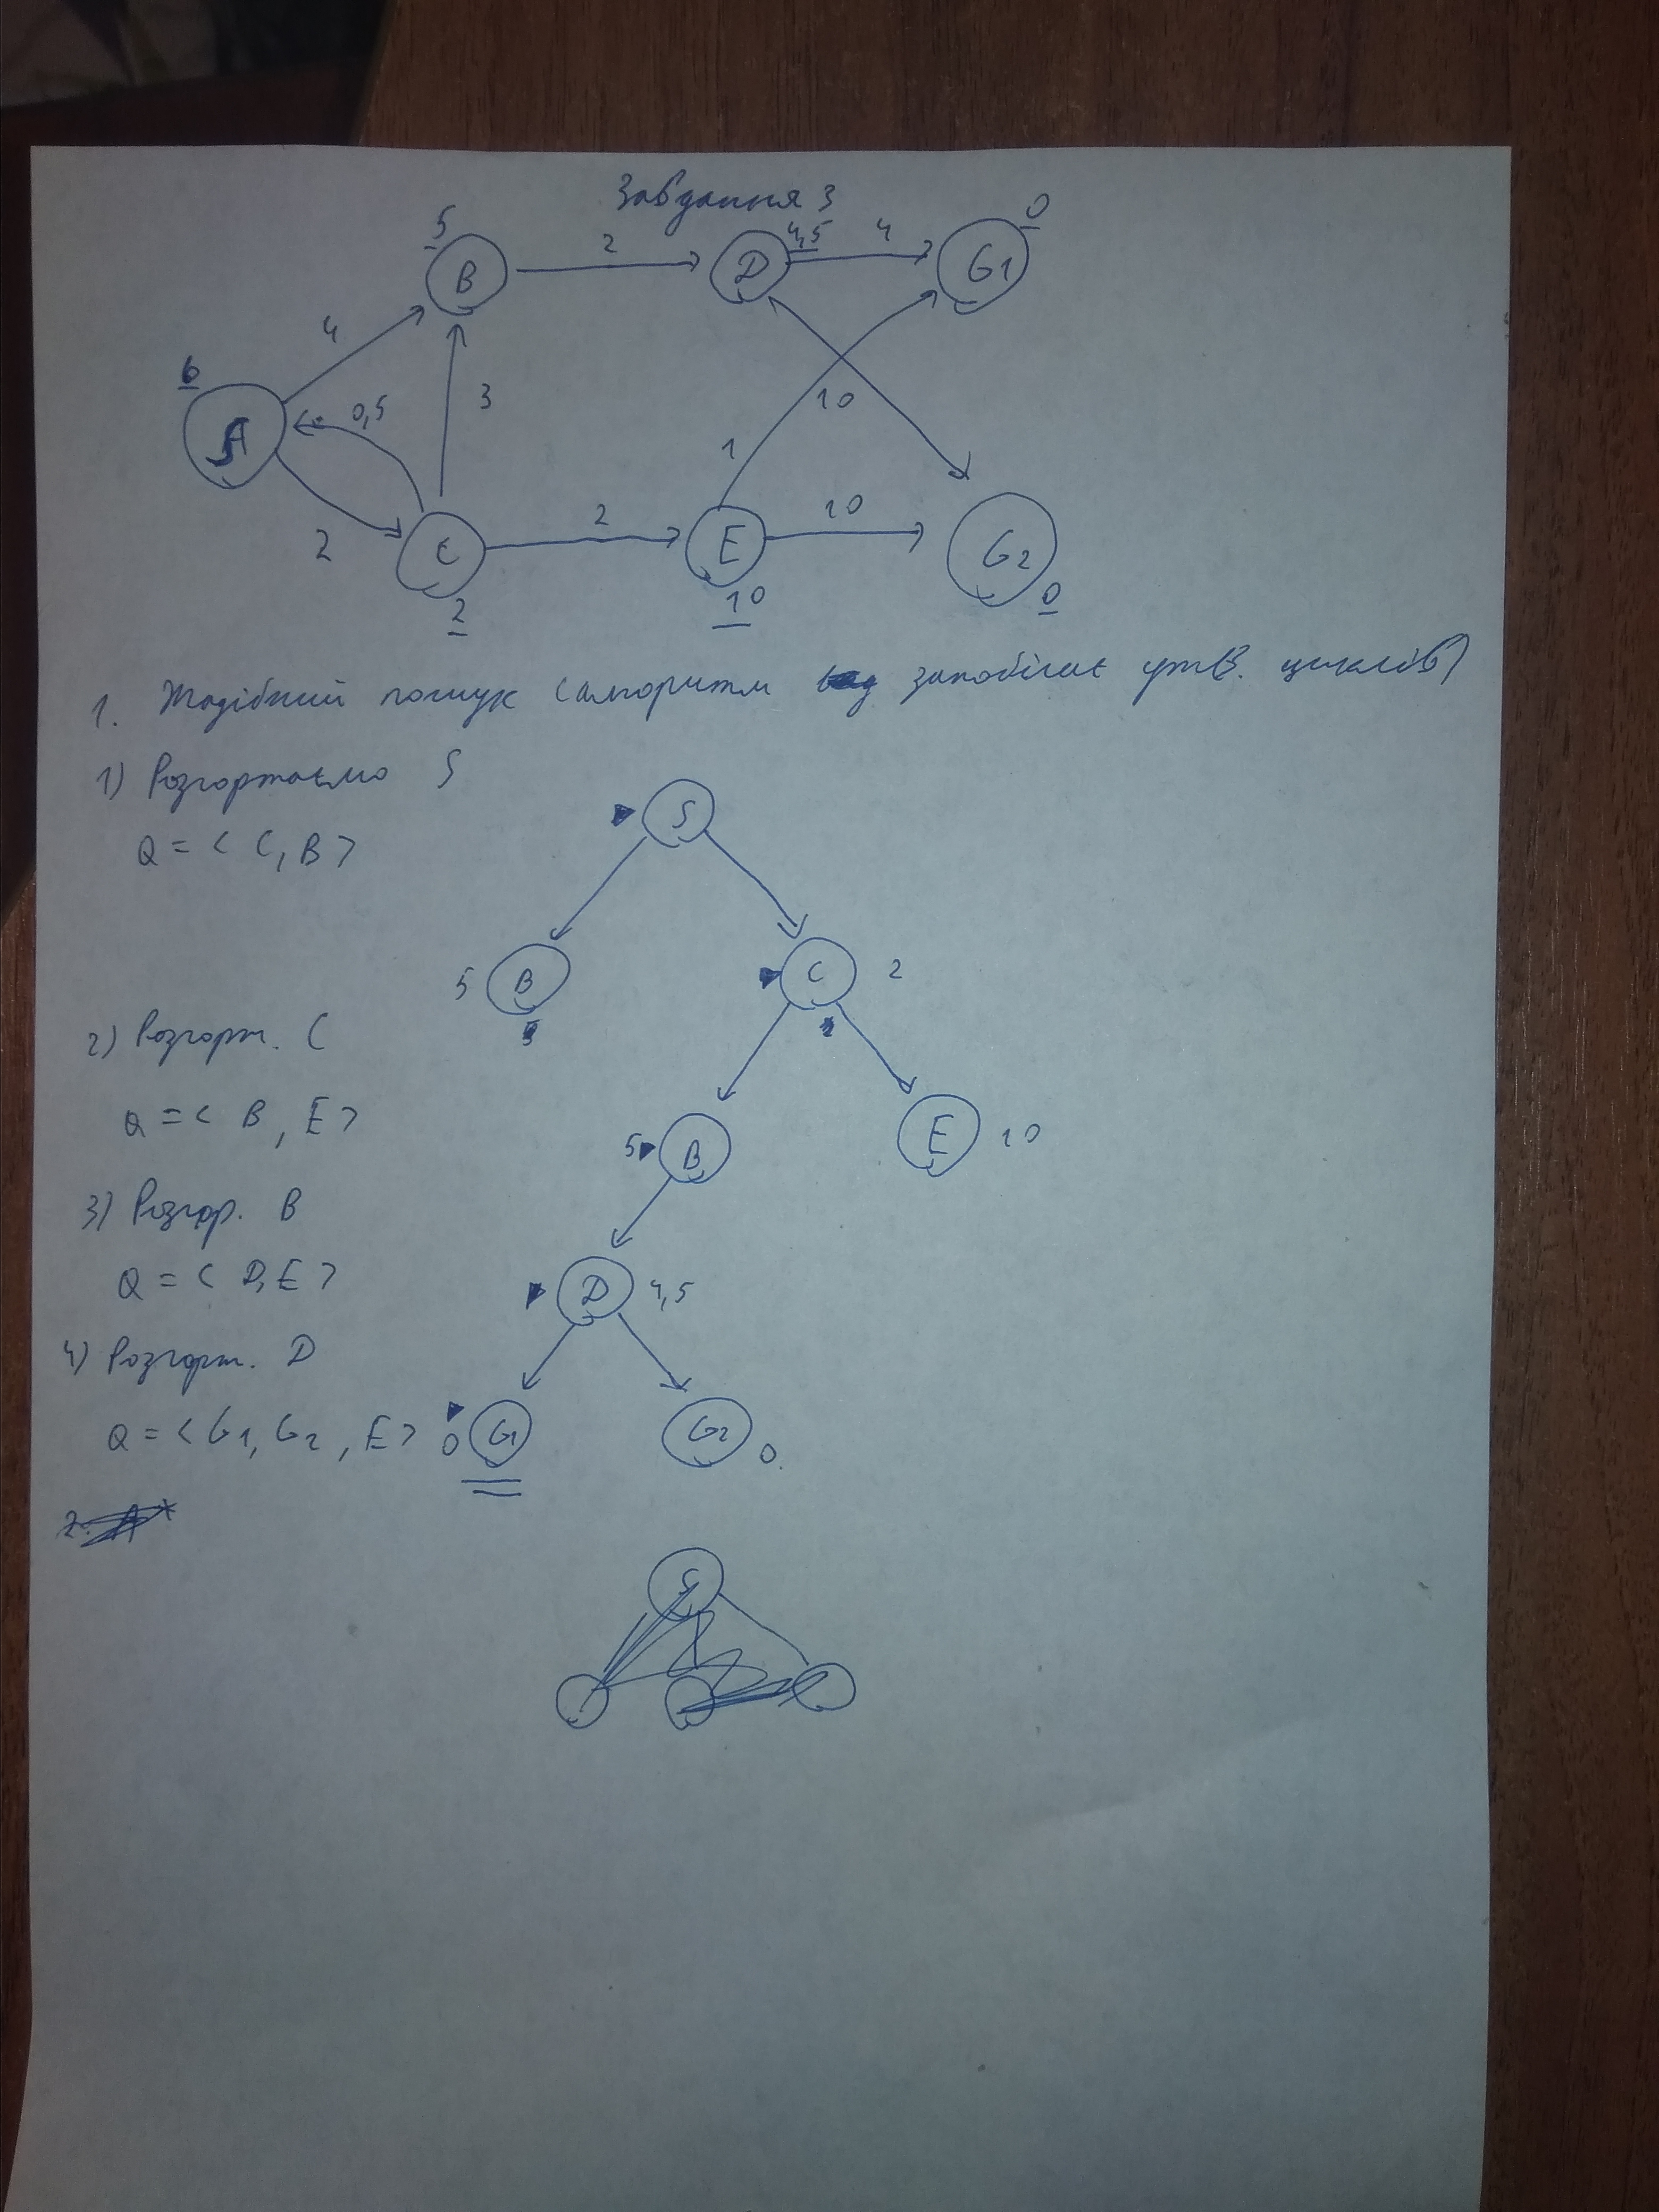 Завдання 3
5 B 2 D 4,5 4 G1 0
4
6 0,5 3 10
1
2 C 2 E 10 G2
2 10 0
1. Жадібний пошук (алгоритм запобігає утв. циклів)
1) Розгортаємо S
Q = < C, B >
S
5 B C 2
2) Розгорт. C
Q = < B, E >
5 B E 10
3) Розгор. B
Q = < D, E >
D 4,5
4) Розгорт. D
Q = < G1, G2, E > 0 G1 G2 0